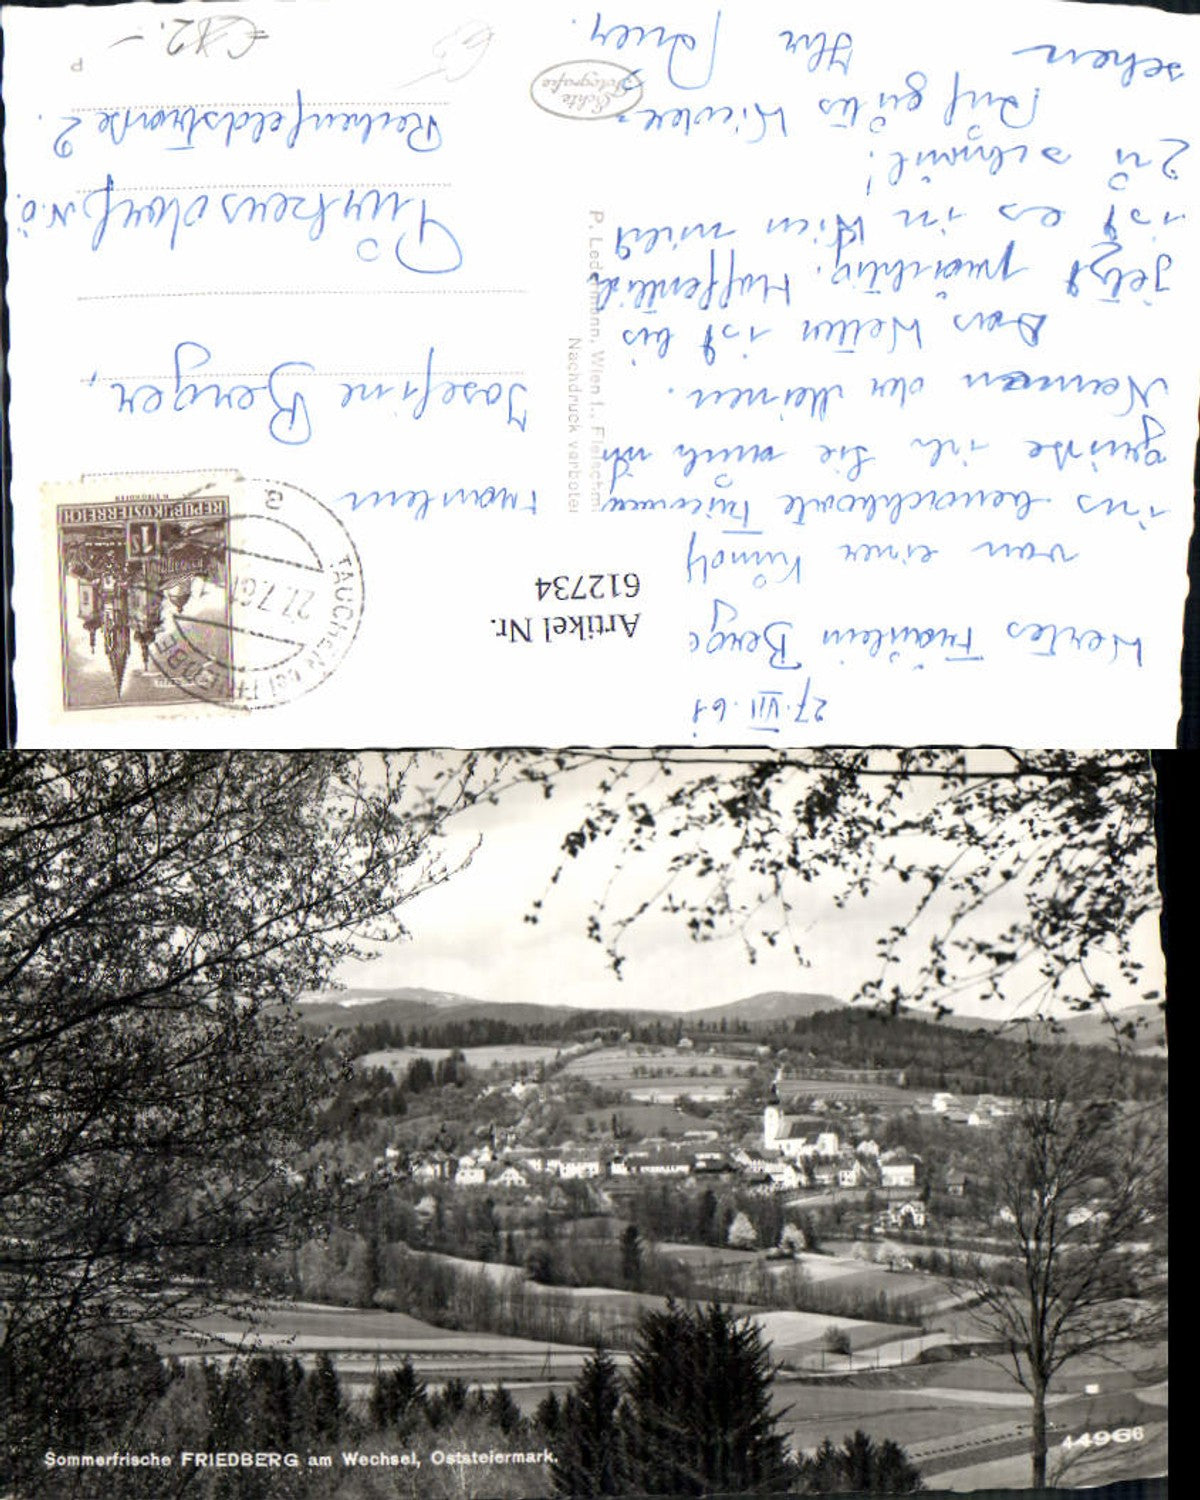 27.VII.61
Wertes Fräulein Berge
von einer
ins benachbarte
grüße ich Sie auch im
Namen der Meinen.
Das Wetter ist bis
jetzt prächtig. Hoffentlich
ist es in Wien nicht
zu schwül!
Auf gutes Wieder-
sehen Ihr
Artikel Nr.
612734
P. Ledermann, Wien I., Fleischm
Nachdruck verboten
Echte
Fotografie
TAUCHEN bei FRIEDBE
27.7.61
a
REPUBLIK ÖSTERREICH
1 S
Fräulein
Josefine Berger,
Purkersdorf, N.Ö.
2.
P
€ 2.-
Sommerfrische FRIEDBERG am Wechsel, Oststeiermark.
44966